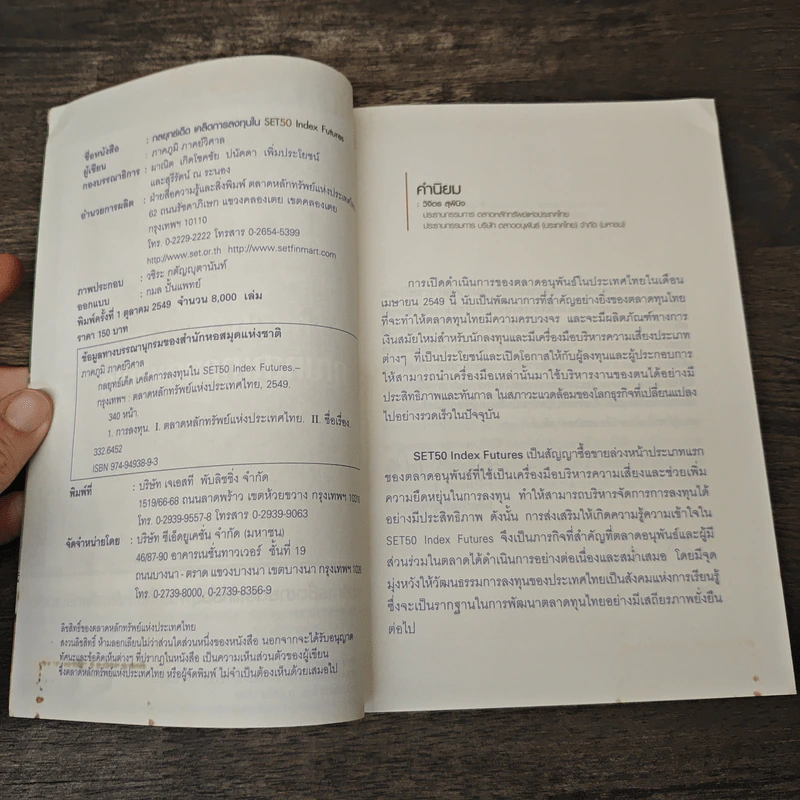 ชื่อหนังสือ : กลยุทธ์เด็ด เคล็ดการลงทุนใน SET50 Index Futures
ผู้เขียน : ภาคภูมิ ภาคย์วิศาล
กองบรรณาธิการ : ผาณิต เกิดโชคชัย ปนัคดา เพิ่มประโยชน์
และสุรีรัตน์ ณ ระนอง
อำนวยการผลิต : ฝ่ายสื่อความรู้และสิ่งพิมพ์ ตลาดหลักทรัพย์แห่งประเทศไทย
62 ถนนรัชดาภิเษก แขวงคลองเตย เขตคลองเตย
กรุงเทพฯ 10110
โทร. 0-2229-2222 โทรสาร 0-2654-5399
http://www.set.or.th http://www.setfinmart.com
ภาพประกอบ : วชิระ กตัญญุตานันท์
ออกแบบ : กมล ปั้นแพทย์
พิมพ์ครั้งที่ 1 ตุลาคม 2549 จำนวน 8,000 เล่ม
ราคา 150 บาท
ข้อมูลทางบรรณานุกรมของสำนักหอสมุดแห่งชาติ
ภาคภูมิ ภาคย์วิศาล
กลยุทธ์เด็ด เคล็ดการลงทุนใน SET50 Index Futures.--
กรุงเทพฯ : ตลาดหลักทรัพย์แห่งประเทศไทย, 2549.
340 หน้า.
1. การลงทุน. I. ตลาดหลักทรัพย์แห่งประเทศไทย. II. ชื่อเรื่อง.
332.6452
ISBN 974-94938-9-3
พิมพ์ที่ : บริษัท เจเอสที พับลิชชิ่ง จำกัด
1519/66-68 ถนนลาดพร้าว เขตห้วยขวาง กรุงเทพฯ
โทร. 0-2939-9557-8 โทรสาร 0-2939-9063
จัดจำหน่ายโดย : บริษัท ซีเอ็ดยูเคชั่น จำกัด (มหาชน)
46/87-90 อาคารเนชั่นทาวเวอร์ ชั้นที่ 19
ถนนบางนา-ตราด แขวงบางนา เขตบางนา กรุงเทพฯ
โทร. 0-2739-8000, 0-2739-8356-9
ลิขสิทธิ์ของตลาดหลักทรัพย์แห่งประเทศไทย
สงวนลิขสิทธิ์ ห้ามลอกเลียนไม่ว่าส่วนใดส่วนหนึ่งของหนังสือ นอกจากจะได้รับอนุญาต
ทัศนะและข้อคิดเห็นต่างๆ ที่ปรากฏในหนังสือ เป็นความเห็นส่วนตัวของผู้เขียน
ซึ่งตลาดหลักทรัพย์แห่งประเทศไทย หรือผู้จัดพิมพ์ ไม่จำเป็นต้องเห็นด้วยเสมอไป
คำนิยม
: วิจิตร สุพินิจ
ประธานกรรมการ ตลาดหลักทรัพย์แห่งประเทศไทย
ประธานกรรมการ บริษัท ตลาดอนุพันธ์ (ประเทศไทย) จำกัด (มหาชน)
การเปิดดำเนินการของตลาดอนุพันธ์ในประเทศไทยในเดือน
เมษายน 2549 นี้ นับเป็นพัฒนาการที่สำคัญอย่างยิ่งของตลาดทุนไทย
ที่จะทำให้ตลาดทุนไทยมีความครบวงจร และจะมีผลิตภัณฑ์ทางการ
เงินสมัยใหม่สำหรับนักลงทุนและมีเครื่องมือบริหารความเสี่ยงประเภท
ต่างๆ ที่เป็นประโยชน์และเปิดโอกาสให้กับผู้ลงทุนและผู้ประกอบการ
ให้สามารถนำเครื่องมือเหล่านั้นมาใช้บริหารงานของตนได้อย่างมี
ประสิทธิภาพและทันกาล ในสภาวะแวดล้อมของโลกธุรกิจที่เปลี่ยนแปลง
ไปอย่างรวดเร็วในปัจจุบัน
SET50 Index Futures เป็นสัญญาซื้อขายล่วงหน้าประเภทแรก
ของตลาดอนุพันธ์ที่ใช้เป็นเครื่องมือบริหารความเสี่ยงและช่วยเพิ่ม
ความยืดหยุ่นในการลงทุน ทำให้สามารถบริหารจัดการการลงทุนได้
อย่างมีประสิทธิภาพ ดังนั้น การส่งเสริมให้เกิดความรู้ความเข้าใจใน
SET50 Index Futures จึงเป็นภารกิจที่สำคัญที่ตลาดอนุพันธ์และผู้มี
ส่วนร่วมในตลาดได้ดำเนินการอย่างต่อเนื่องและสม่ำเสมอ โดยมีจุด
มุ่งหวังให้วัฒนธรรมการลงทุนของประเทศไทยเป็นสังคมแห่งการเรียนรู้
ซึ่งจะเป็นรากฐานในการพัฒนาตลาดทุนไทยอย่างมีเสถียรภาพยั่งยืน
ต่อไป